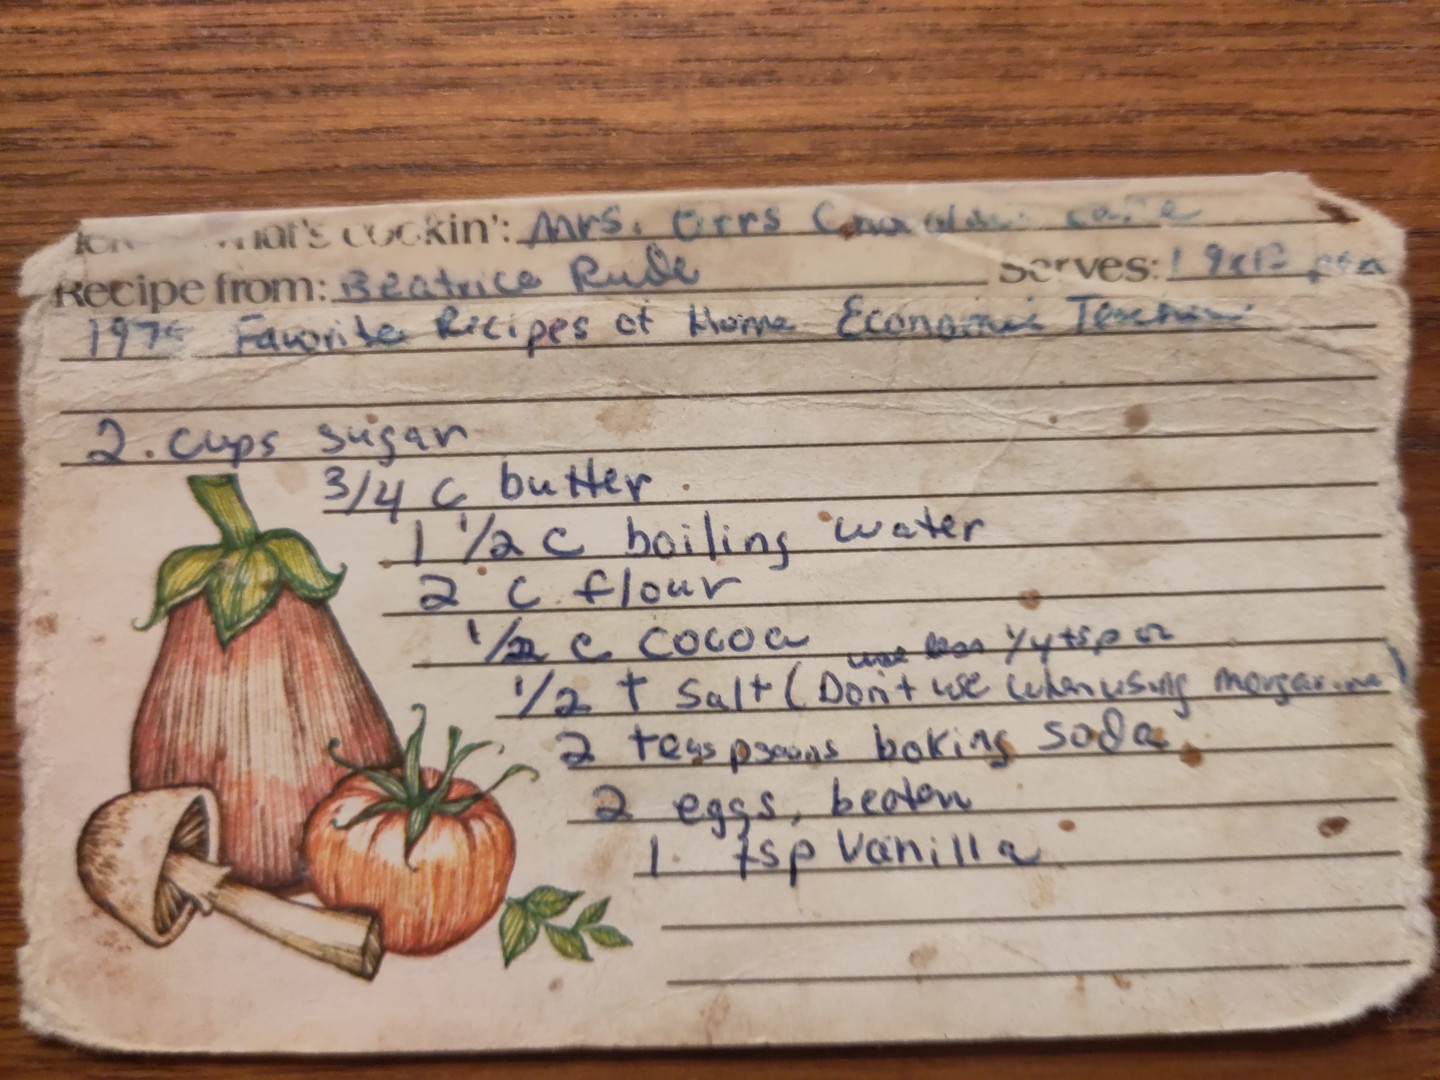 hat's cookin': Mrs. Orrs Chocolate Cake
Recipe from: Beatrice Rude Serves: 1 9x13 pan
Favorite Recipes of Home Economic Teachers
2 cups sugar
3/4 c butter
1 1/2 c boiling water
2 c flour
1/2 c cocoa
use less 1/4 tsp or
1/2 t salt (Don't use when using margarine)
2 teaspoons baking soda
2 eggs, beaten
1 tsp vanilla